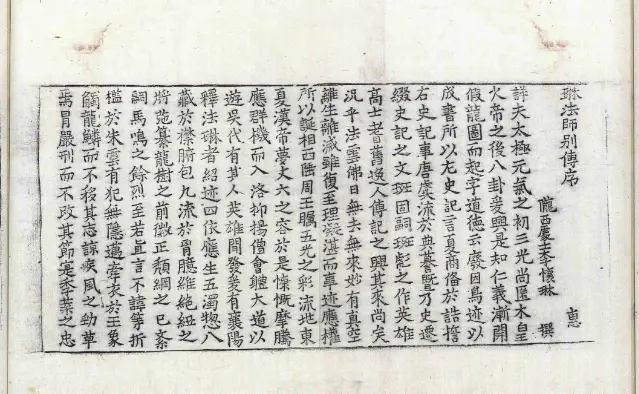 琳法師別傳序 惠
隴西處士李懷琳 撰
詳夫太極元氣之初三光尚匿木皇
火帝之後八卦爰興是知仁義漸開
假龍圖而起字道德云廢因鳥迹以
成書所以左史記言夏商俻於誥誓
右史記事唐虞流於典謩暨乃史遷
綴史記之文班固詞班彪之作英雄
高士耆舊逸人傳記之興其來尚矣
況乎法雲佛日無去無來妙有真空
雖生雖滅雖復至理凝湛而事迹應權
所以誕相西隅周王矚五光之彩流地東
夏漢帝夢丈六之容於是慷慨摩騰
應群機而入洛抑揚僧會軆大道以
遊吳代有其人英雄間發爰有襄陽
釋法琳者紹迹四依應生五濁惣八
藏於襟腑包九流於胷臆維絕紐之
將弛纂龍樹之前徽正頹綱之已紊
嗣馬鳴之餘烈至若直言不諱等折
檻於朱雲有犯無隱邁牽衣於王象
觸龍鱗而不移其志諒疾風之勁草
焉冒嚴刑而不改其節是季葉之忠